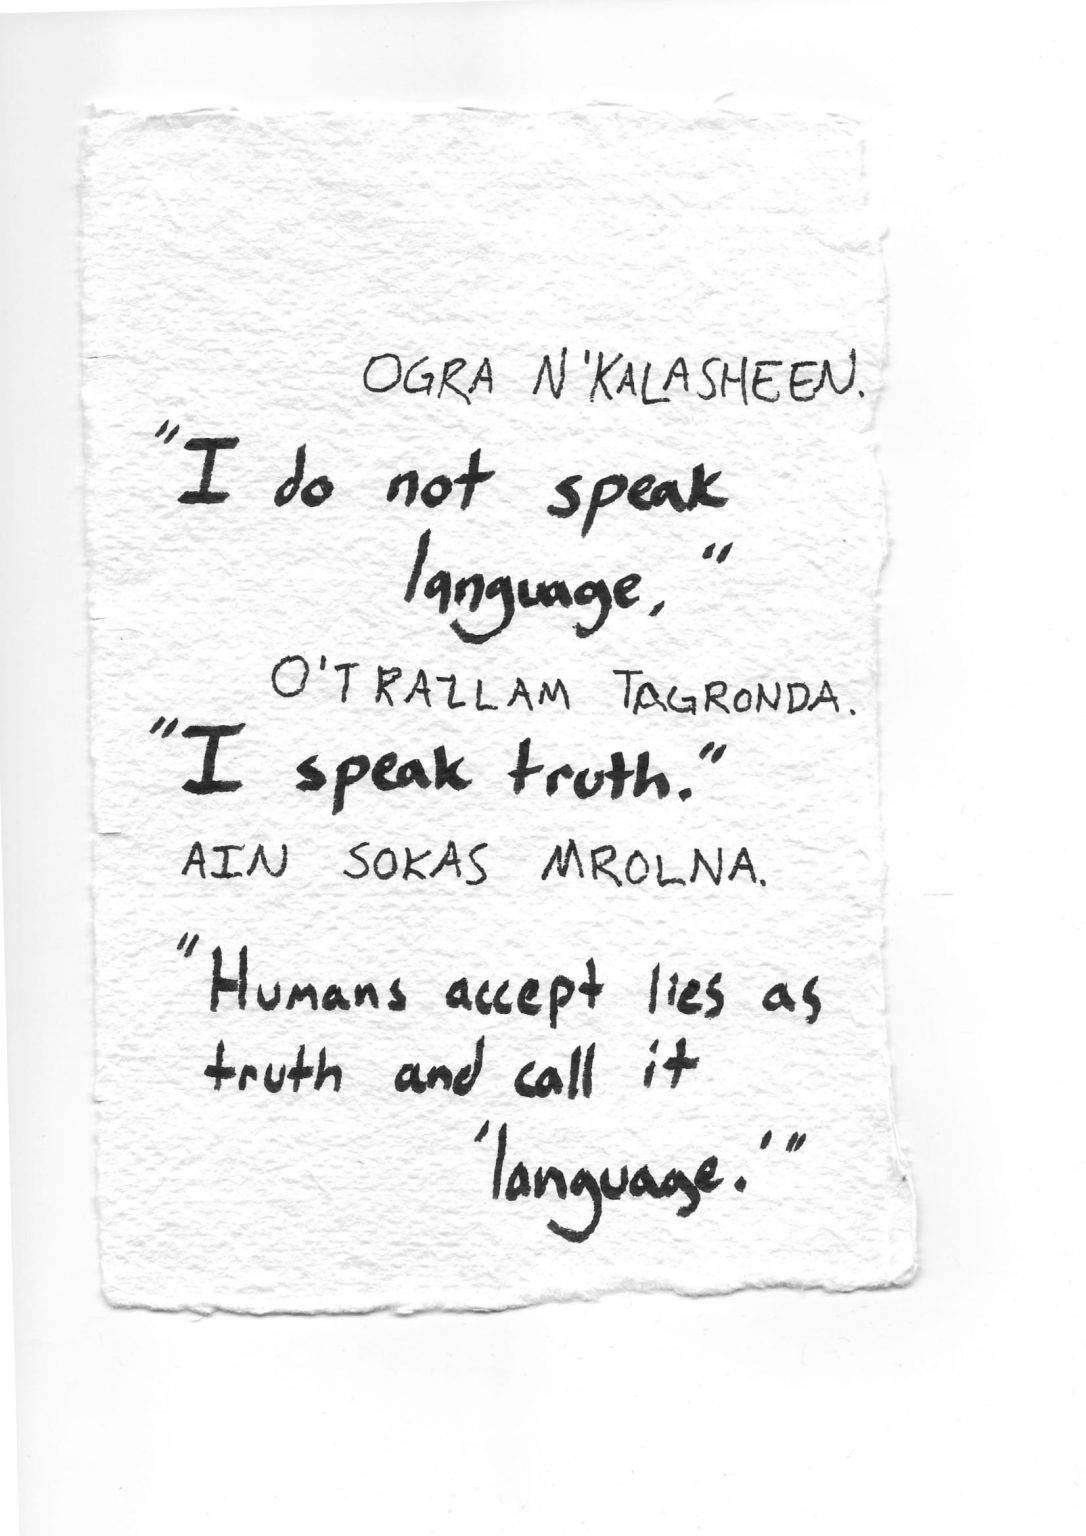 OGRA N'KALASHEEN.
"I do not speak
language,"
O'TRAZLLAM TAGRONDA.
"I speak truth."
AIN SOKAS MROLNA.
"Humans accept lies as
truth and call it
'language.'"